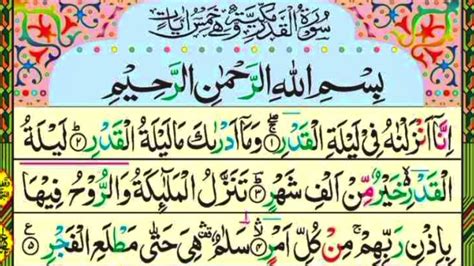 سُوْرَةُ الْقَدْرِ مَكِّيَّةٌ وَّهِيَ خَمْسُ اٰيَاتٍ
بِسْمِ اللهِ الرَّحْمٰنِ الرَّحِيْمِ
اِنَّاۤ اَنْزَلْنٰهُ فِیْ لَیْلَةِ الْقَدْرِ ۝۱ وَمَاۤ اَدْرٰىكَ مَا لَیْلَةُ الْقَدْرِ ۝۲ لَیْلَةُ
الْقَدْرِ خَیْرٌ مِّنْ اَلْفِ شَهْرٍ ۝۳ تَنَزَّلُ الْمَلٰٓىِٕكَةُ وَالرُّوْحُ فِیْهَا
بِاِذْنِ رَبِّهِمْ مِنْ كُلِّ اَمْرٍ ۝۴ سَلٰمٌ هِیَ حَتّٰی مَطْلَعِ الْفَجْرِ ۝۵